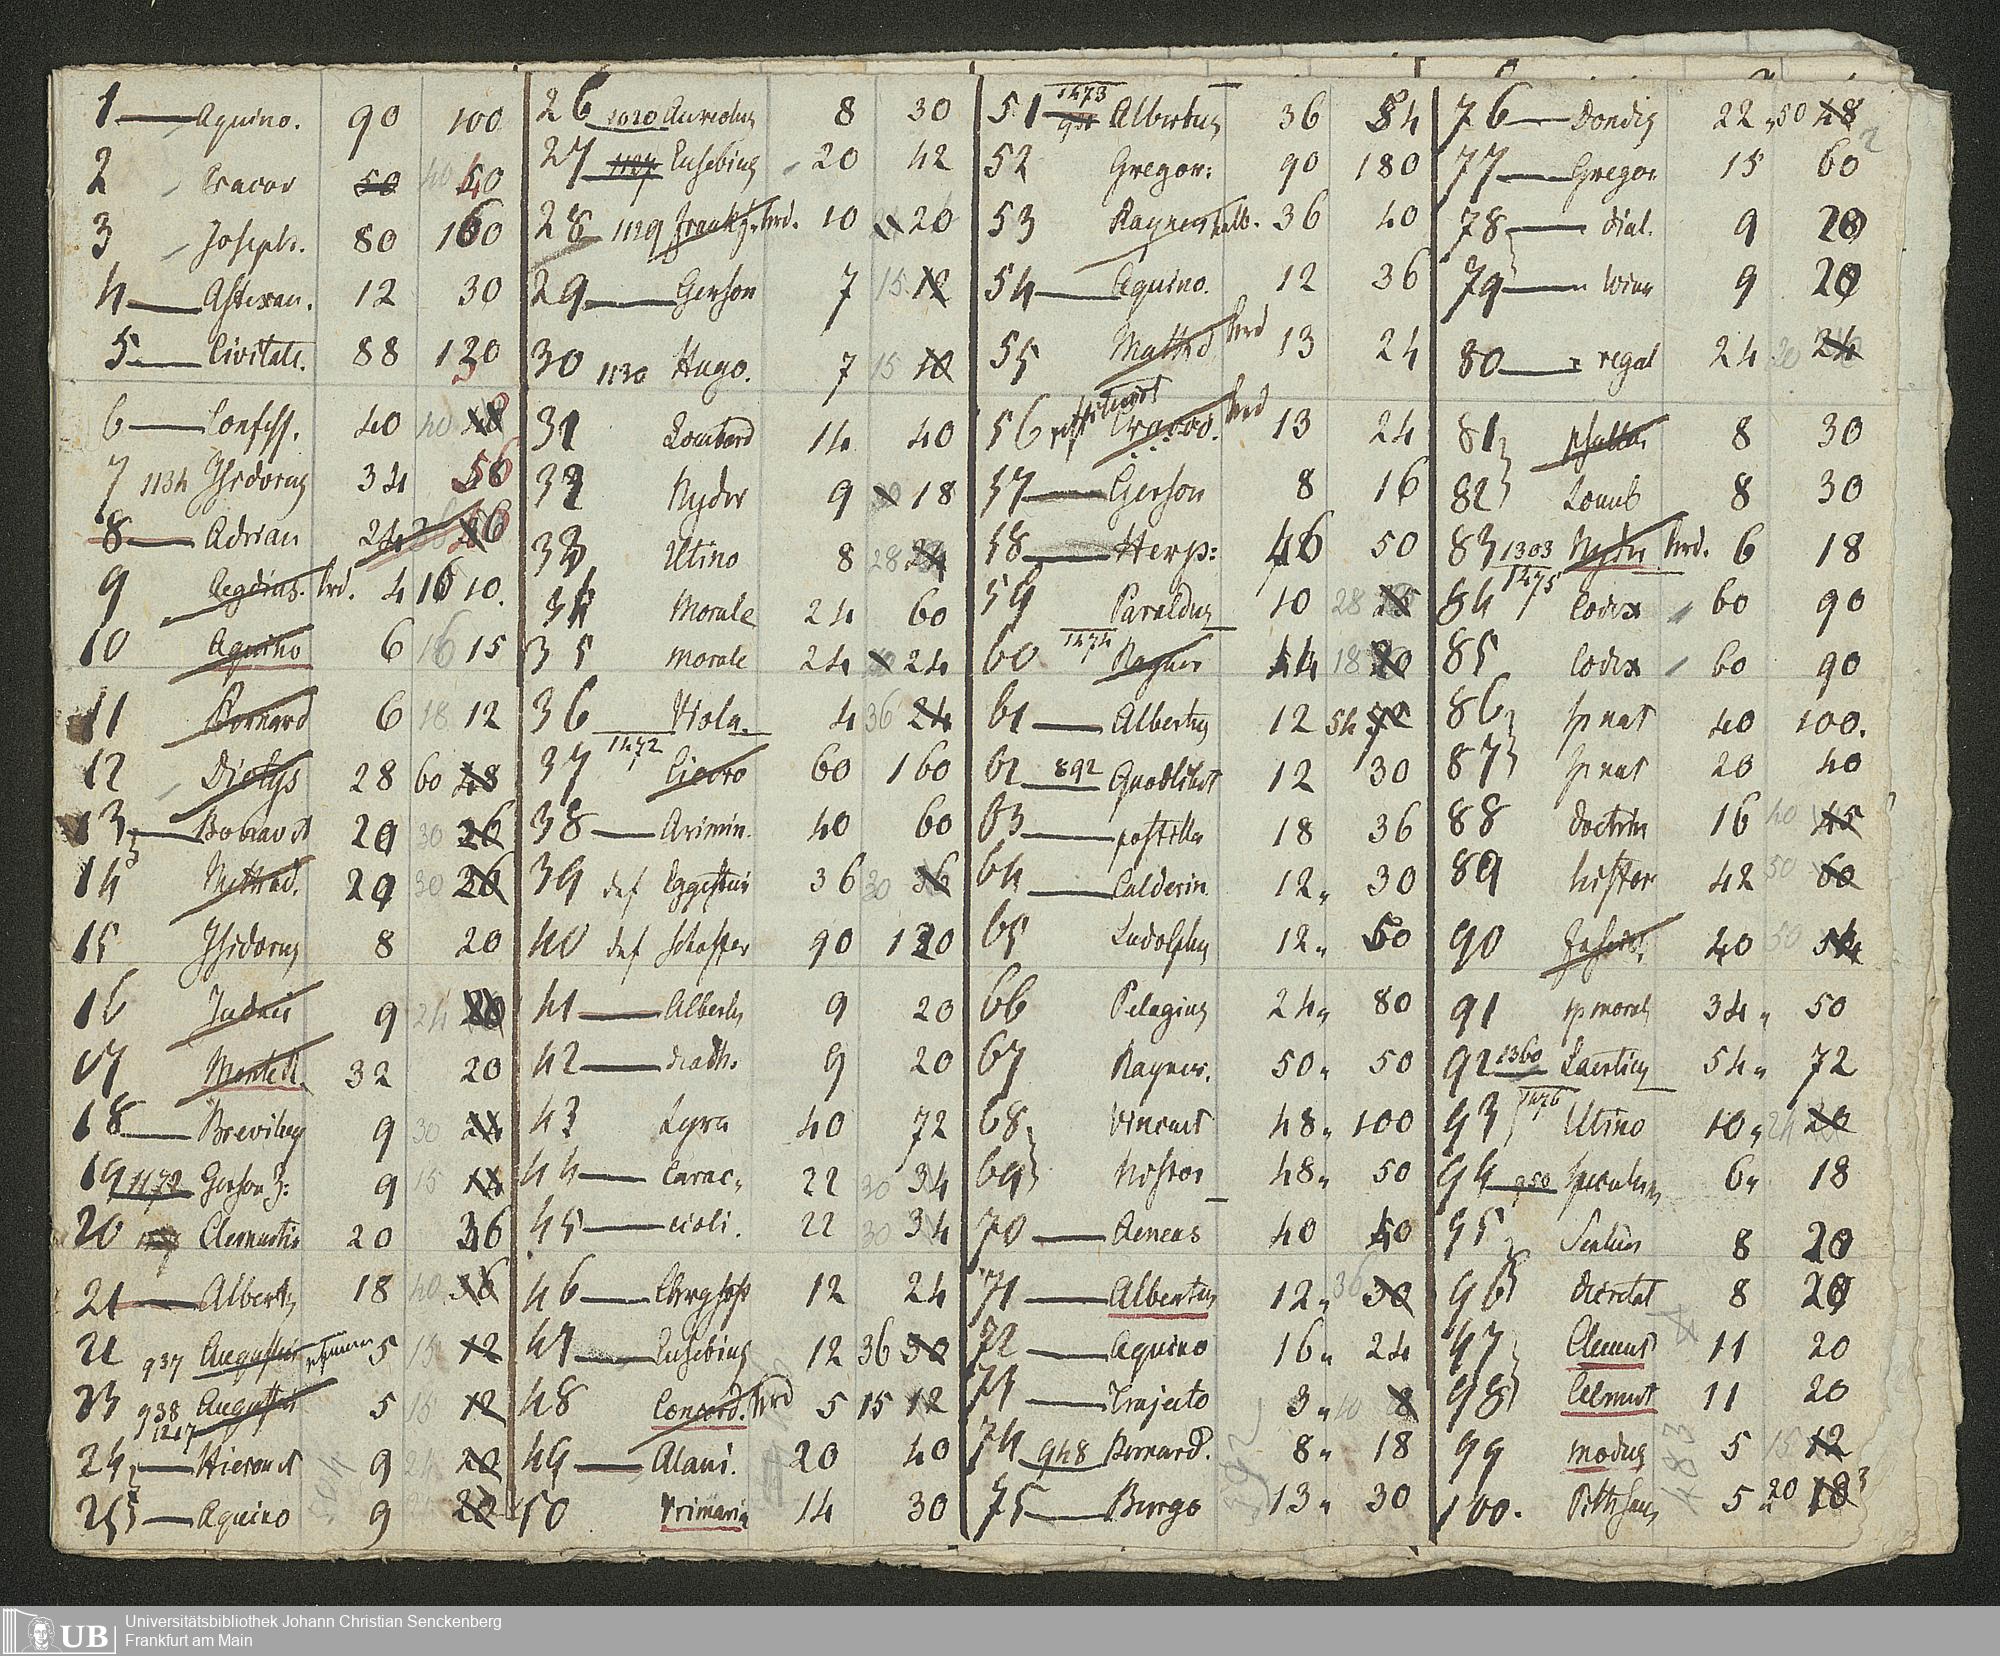 1 — Aquino. 90 100
2 Cracov 50 40 50
3 Joseph. 80 160
4 — Astexan. 12 30
5 — Civitate. 88 130
6 — Confess. 40 40 48
7 1134 Isidorus 34 56
8 — Adrian 24 36
9 Aegdius. hrd. 4 16 10.
10 Aquino 6 16 15
11 Bernard 6 18 12
12 Dionys 28 60 48
13 — Bonavēt 20 30 26
14 Methad. 20 30 26
15 Isidorus 8 20
16 Judaei 9 24 20
17 Montell. 32 20
18 — Breviloq 9 30 24
19 1172 Gerson 3: 9 15 14
20 Clementis 20 36
21 — Albertus 18 40 36
22 937 Augustin 5 15 12
23 938 Augustin 5 15 12
24 1217 — Hieronēt 9 24 20
25 — Aquino 9 24 20
26 1020 Aureolus 8 30
27 1127 Eusebius 20 42
28 1129 Frankf. hrd. 10 20
29 — Gerson 7 15 12
30 1130 Hugo. 7 15 10
31 Lombard 14 40
32 Nyder 9 18
33 Utino 8 28 24
34 Morale 24 60
35 morale 24 24
36 Viola. 4 36 24
1472
37 Cicero 60 160
38 — Arimin. 40 60
39 def Eggestein 36 30 36
40 def Schoffer 90 120
41 — Albertus 9 20
42 — 9 20
43 Lyra 40 72
44 — Carac. 22 30 34
45 — 22 30 34
46 — Chrysost 12 24
47 — Eusebius 12 36 30
48 Concord. hrd 5 15 12
49 — Alani. 20 40
50 Primaria 14 30
1473
51 Albertus 36 54
52 Gregor: 90 180
53 Rayner halb. 36 40
54 — Aquino. 12 36
55 Matthd hrd 13 24
56 restituirt Cracov. hrd 13 24
57 — Gerson 8 16
58 — Herp: 46 50
59 Paraldus 10 28 25
1474
60 Rayner 44 18 20
61 — Albertus 12 54 50
62 892 Quodlibet 12 30
63 — postilla 18 36
64 — Calderin 12 30
65 Ludolphus 12 50
66 Pelagius 24 80
67 Rayner. 50 50
68 Vincent 48 100
69 histor 48 50
70 — Aeneas 40 50
71 — Albertus 12 36 30
72 — Aquino 16 24
73 — Trajecto 3 10 8
74 948 Bernard. 8 18
75 — Burgo 13 30
392
76 — Dondis 22 50 48
77 — Gregor 15 60
78 — dial. 9 20
79 — 9 20
80 — regal 24 30 24
81 psalter 8 30
82 Lomb 8 30
83 1303 Nyder hrd. 6 18
1475
84 Codex 60 90
85 Codex 60 90
86 sp nat 40 100.
87 sp nat 20 40
88 doctrin 16 40 45
89 histor 42 50 60
90 40 50 54
91 sp moral 34 50
92 1360 Laertius 54 72
1476
93 Utino 10 24 20
94 950 Speculum 6 18
95 8 20
96 decretal 8 20
97 Clement 11 20
98 Clement 11 20
99 modus 5 15 12
100. 5 20 18
483
UB Universitätsbibliothek Johann Christian Senckenberg
Frankfurt am Main